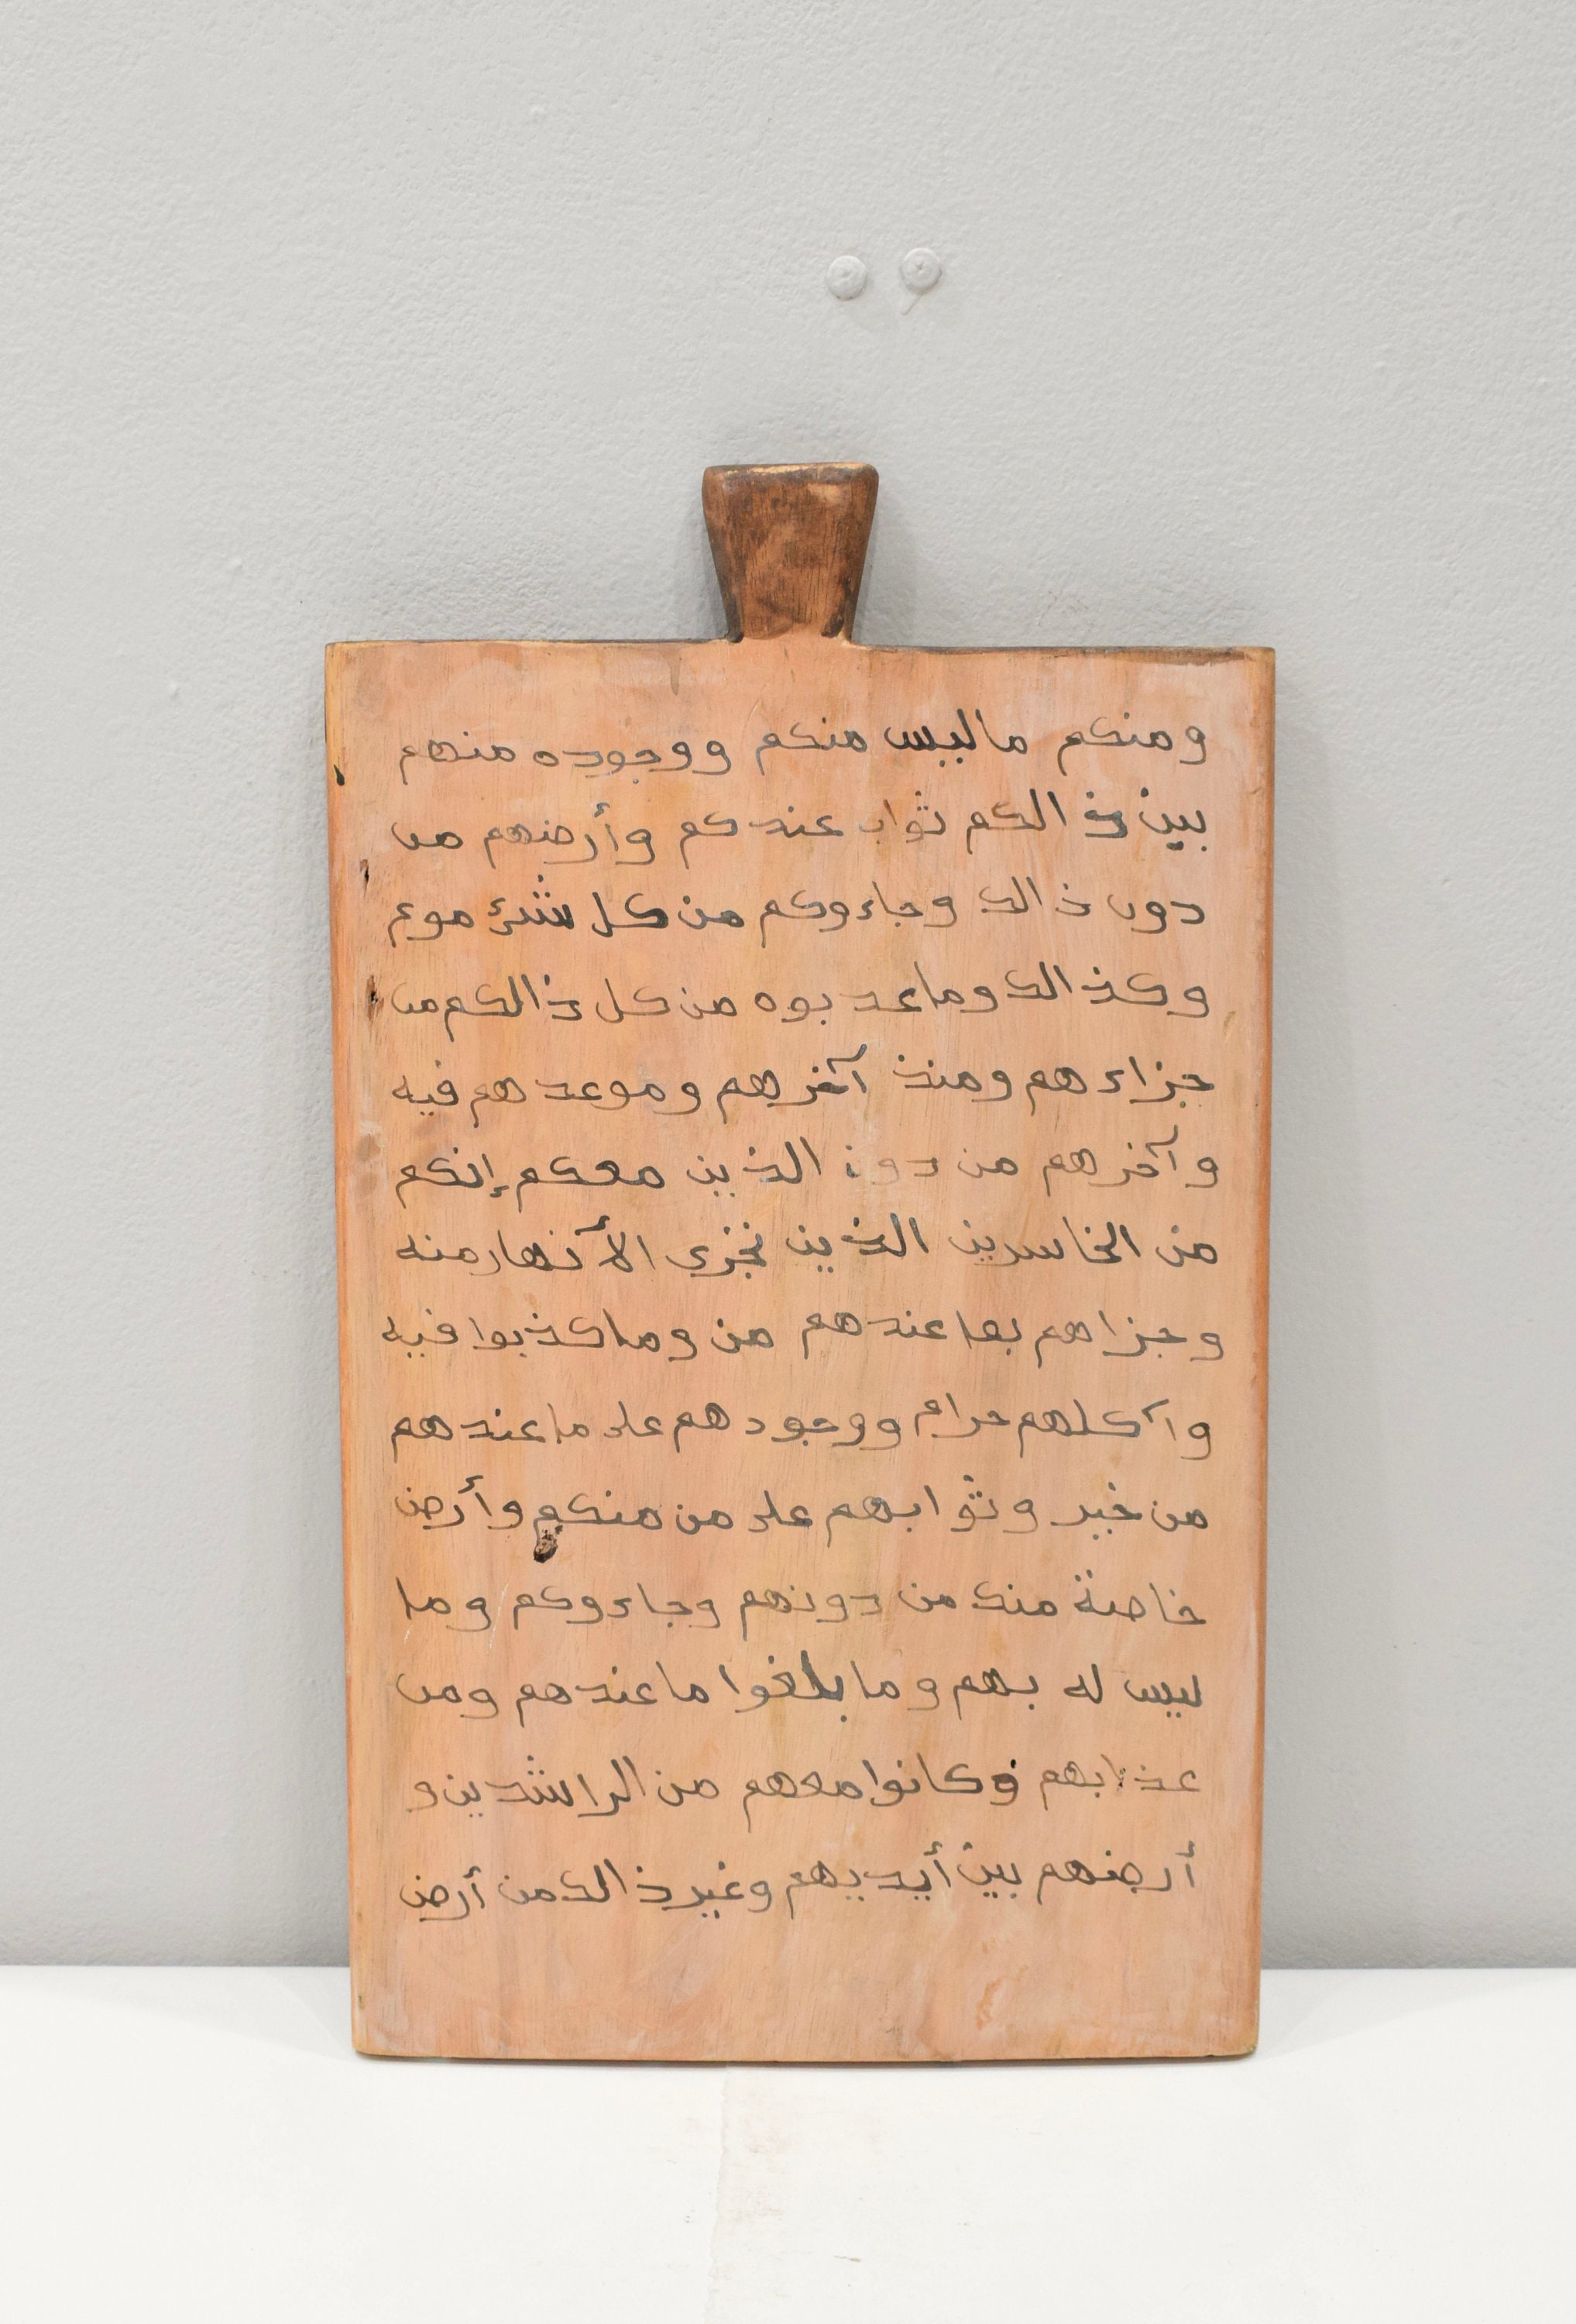 ومنكم ماليس منكم ووجوده منهم
بين ذالكم ثواب عندكم وأرضهم من
دون ذالك وجاءوكم من كل شيء
وكذالك وما عدبوه من كل ذالكم من
جزاءهم ومنذ آخرهم وموعدهم فيه
وآخرهم من دون الذين معكم إنكم
من الخاسرين الذين تجزى الأنهار منه
وجزاهم بما عندهم من وما كذبوا فيه
وآكلهم حرام ووجودهم على ما عندهم
من خير وثوابهم على من منكم وأرض
خاصة منك من دونهم وجاءوكم وما
ليس له بهم وما بلغوا ما عندهم ومن
عذابهم وكانوا معهم من الراشدين و
أرضهم بين أيديهم وغير ذالك من أرض